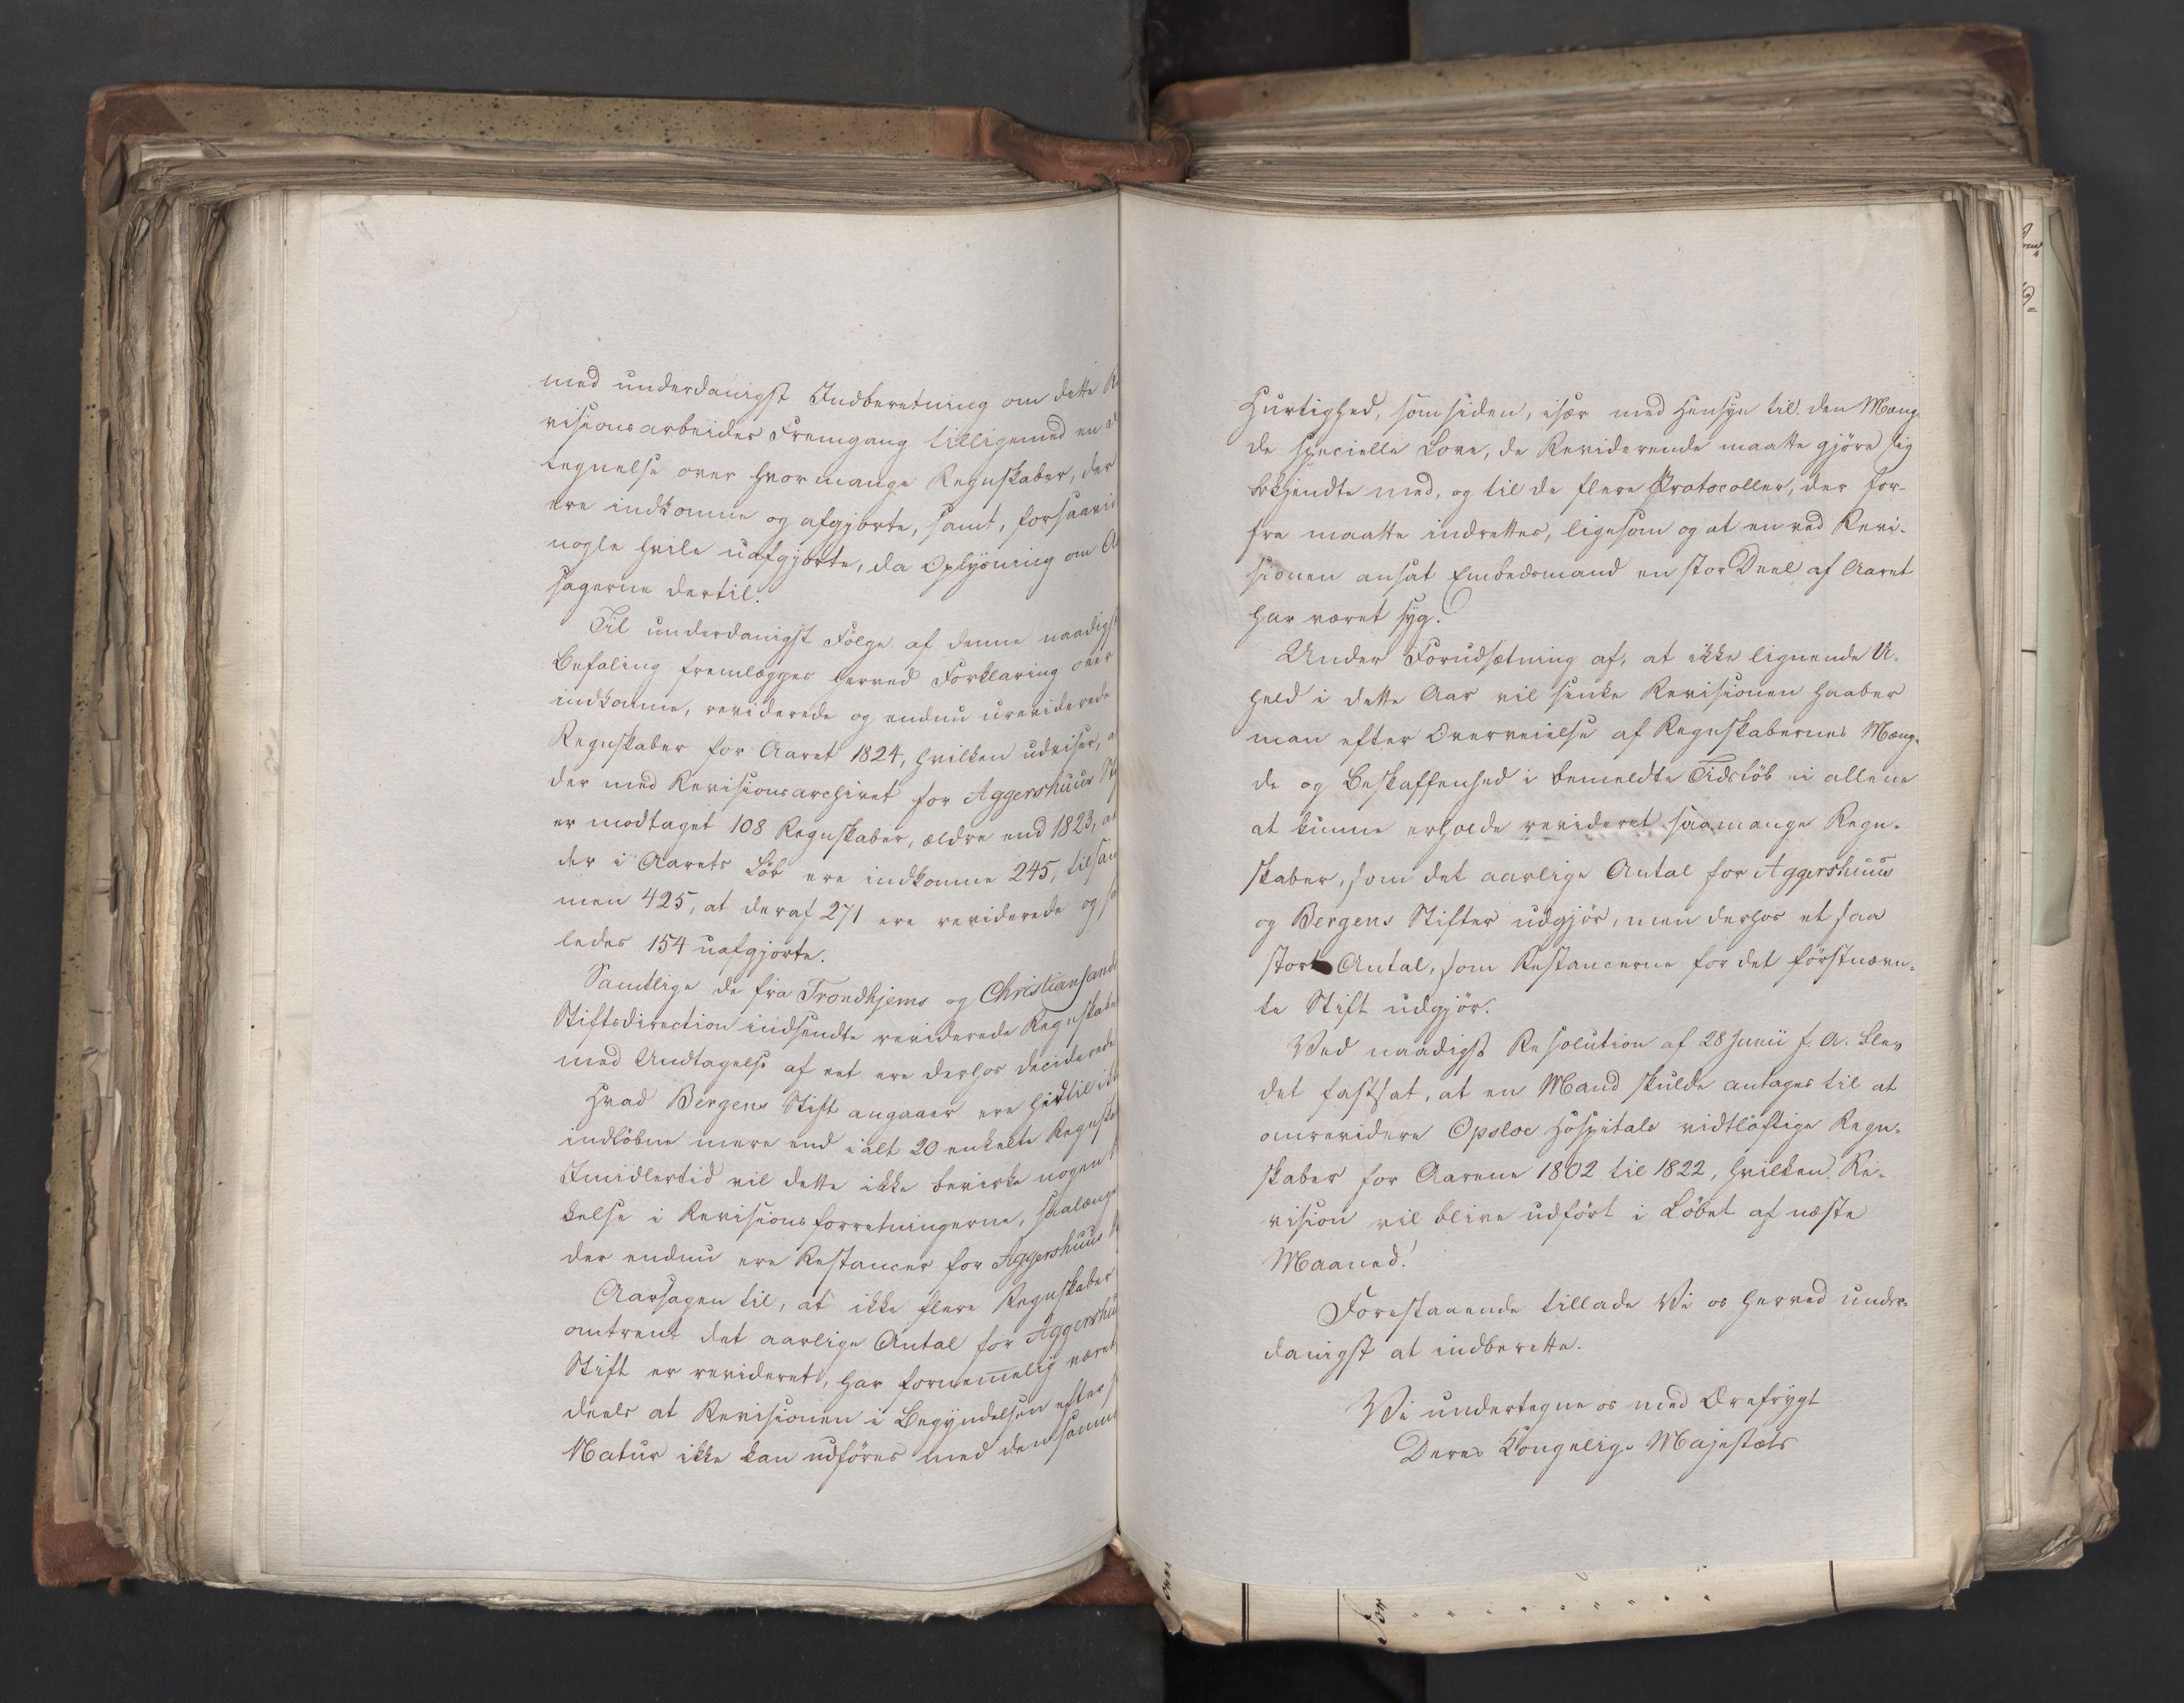 med underdanigst Indberetning om dette Re
visionsarbeides Fremgang tilligemed en
tegnelse over hvormange Regnskaber, der
ere indkomne og afgjorte, samt, forsaavidt
nogle hvile uafgjorte, da Oplysning om A
sagerne dertil.
Til underdanigst Følge af denne naadigst
Befaling fremlægges herved Forklaring over
indkomne, reviderede og endnu ureviderede
Regnskaber for Aaret 1824, hvilken udviser, a
der med Revisionsarchivet for Aggershuus St
er modtaget 108 Regnskaber, ældre end 1823, at
der i Aarets Løb ere indkomne 245, tilsam
men 425, at deraf 271 ere reviderede og sa
ledes 154 uafgjorte.
Samtlige de fra Trondhjems og Christiansands
Stiftsdirection indsendte reviderede Regnskaber
med Undtagelse af eet ere derhos deciderede
Hvad Bergens Stift angaaer ere hidtil ikke
indløbne mere end ialt 20 enkelte Regnska
Imidlertid vil dette ikke bevirke nogen
kelse i Revisionsforretningerne, saalænge
der endnu ere Restancer for Aggershuus
Aarsagen til, at ikke flere Regnskaber
omtrent det aarlige Antal for Aggershu
Stift er revideret, har fornemmelig været
deels at Revisionen i Begyndelsen efter s
Natur ikke kan udføres med den samme
Hurtighed, som siden, især med Hensyn til den Mæng-
de specielle Love, de Reviderende maatte gjøre sig
bekjendte med, og til de flere Protocoller, der for-
fra maatte indrettes, ligesom og at en ved Revi-
sionen ansat Embedsmand en stor Deel af Aaret
har været syg.
Under Forudsætning af, at ikke lignende U-
held i dette Aar vil sinke Revisionen haaber
man efter Overveielse af Regnskabernes Mæng-
de og Beskaffenhed i bemeldte Tidsløb ei allene
at kunne erholde revideret saamange Regn-
skaber, som det aarlige Antal for Aggershuus
og Bergens Stifter udgjør, men derhos et saa
stort Antal, som Restancerne for det førstnævn-
te Stift udgjør.
Ved naadigst Resolution af 28 Junii f. A. blev
det fastsat, at en Mand skulde antages til at
omrevidere Opsloe Hospitals vidtløftige Regn-
skaber for Aarene 1802 til 1822, hvilken Re-
vision vil blive udført i Løbet af næste
Maaned.
Forestaaende tillade Vi os herved under-
danigst at indberette.
Vi undertegne os med Ærefrygt
Deres Kongelige Majestæts